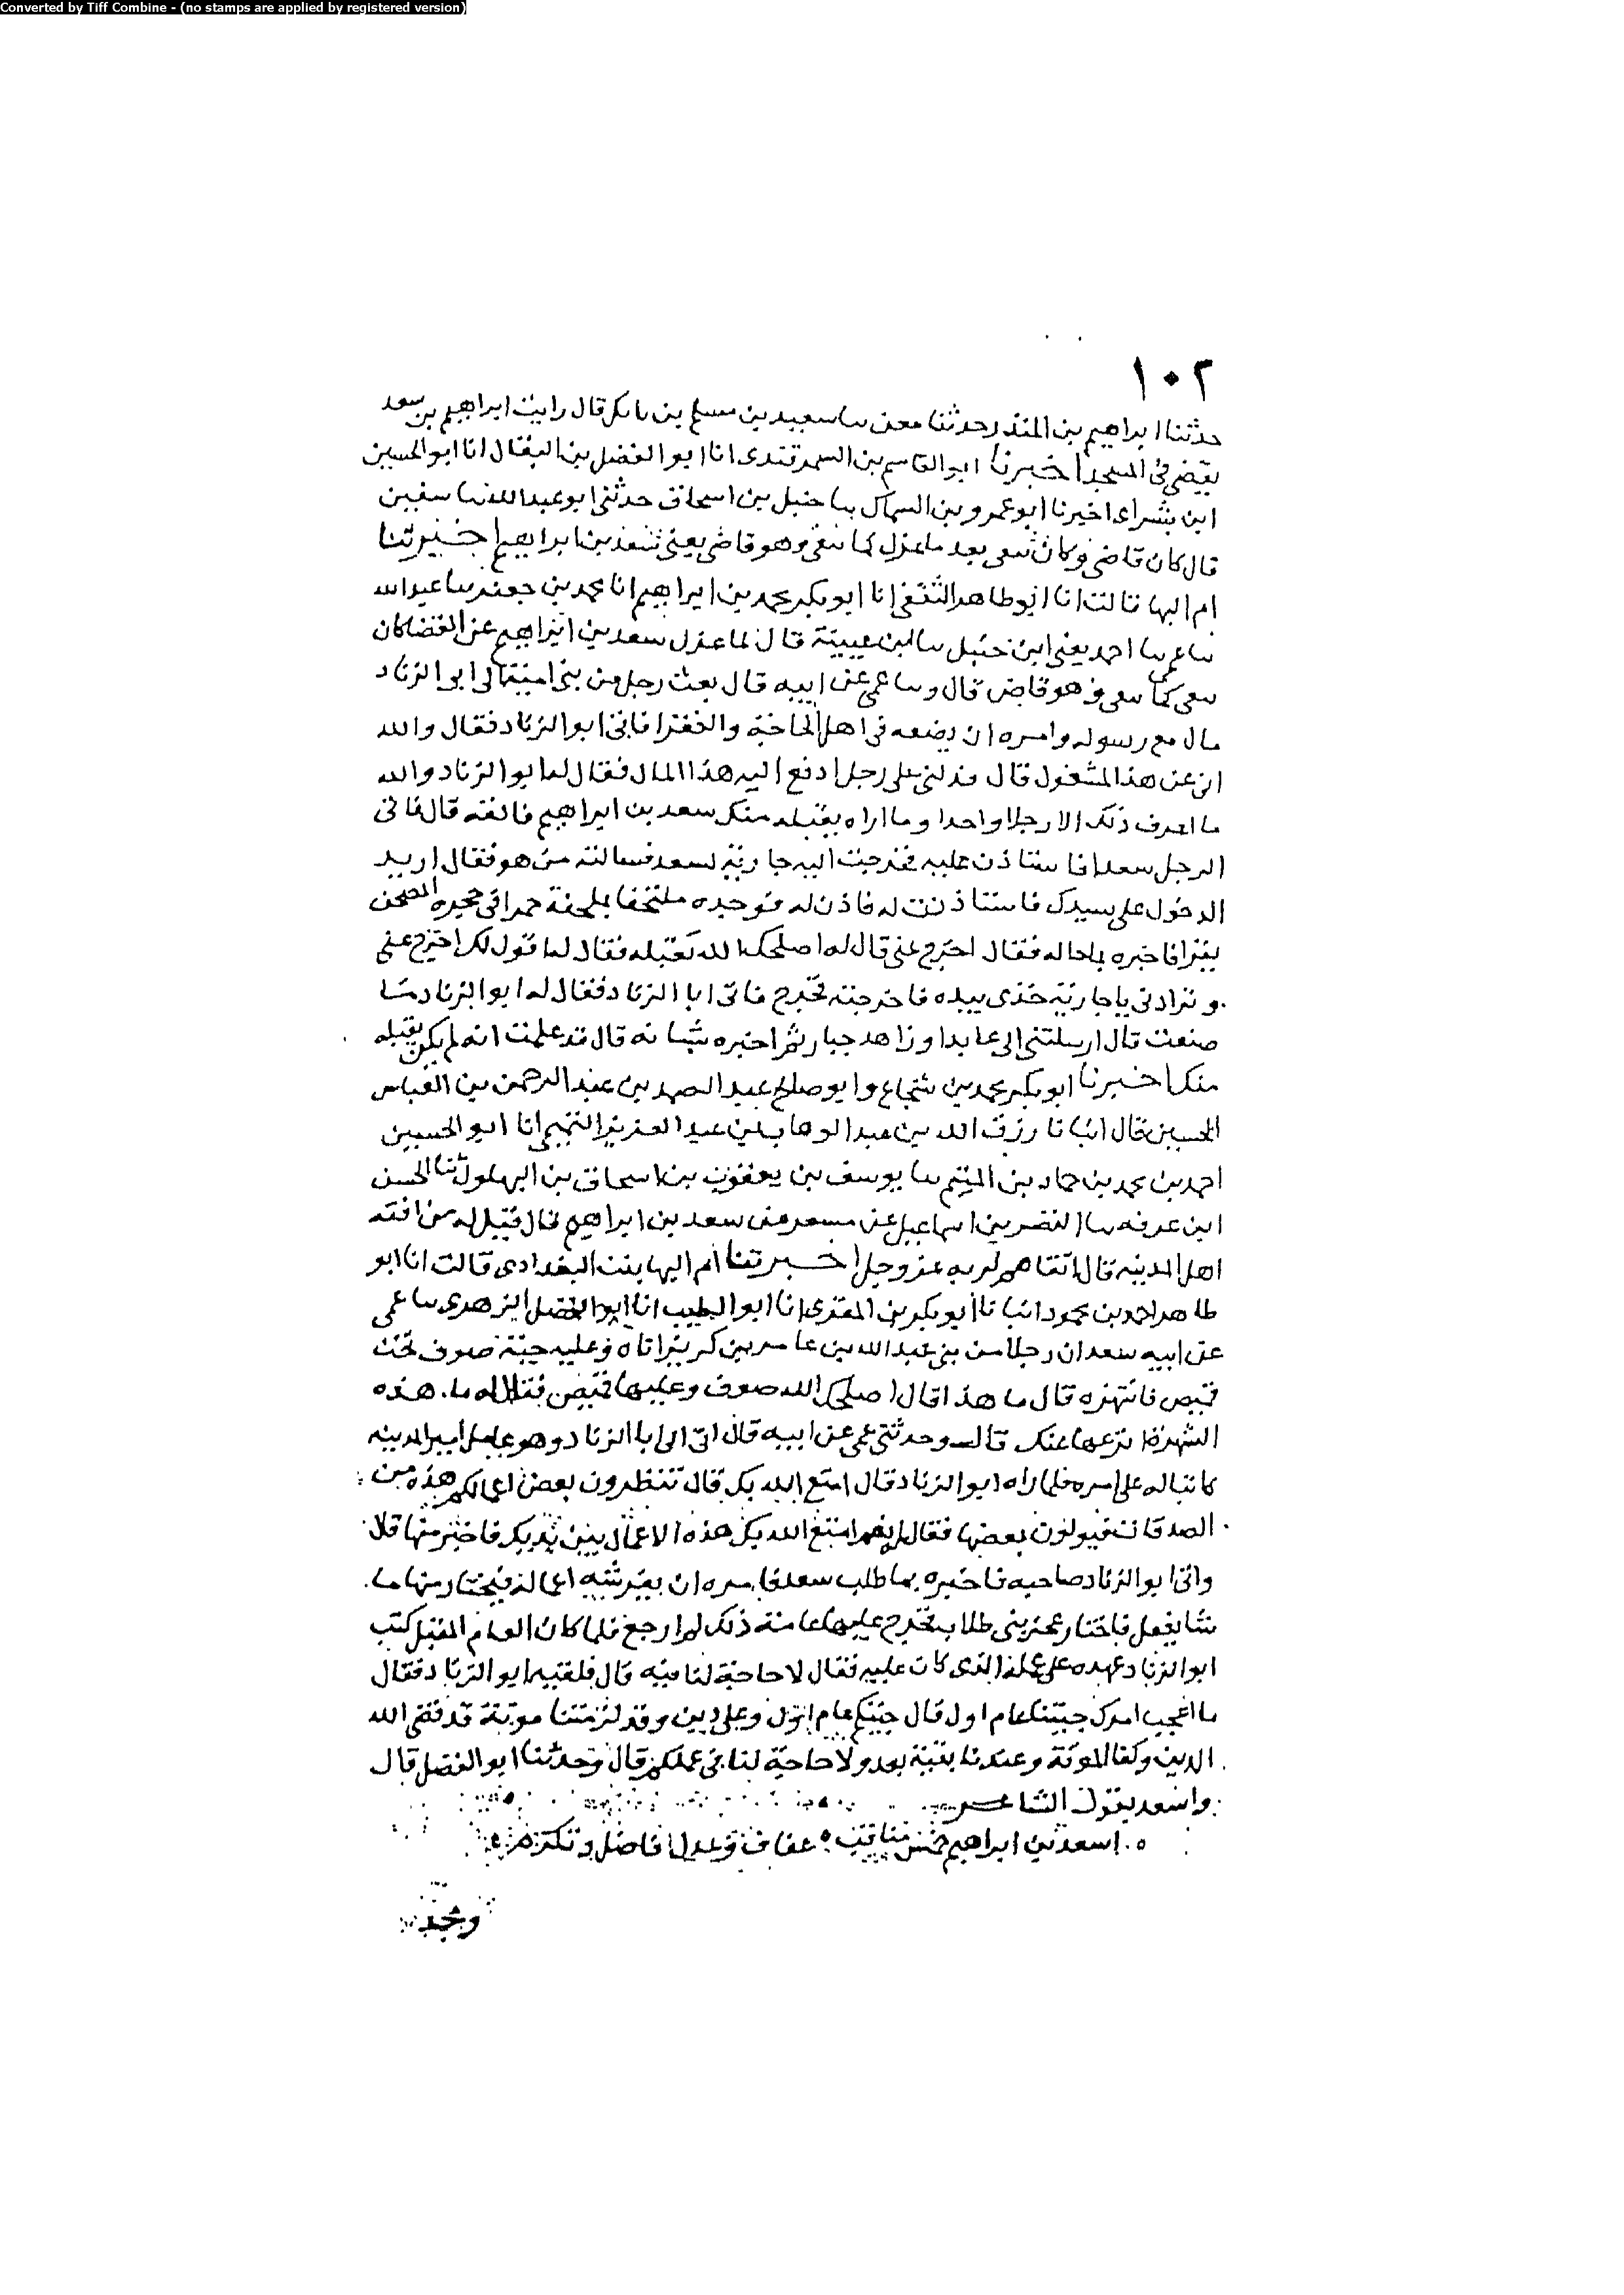 Converted by Tiff Combine - (no stamps are applied by registered version)
١٠٢
حدثنا ابراهيم بن المنذر حدثنا معن سا سعيد بن مسلم بن بابك قال رايت ابراهيم بن سعد
يقضى فى المسجد اخبرنا ابو القاسم بن السمرقندى انا ابو الفضل بن البقال انا ابو الحسين
ابن بشران اخبرنا ابو عمرو بن السماك سا حنبل بن اسحاق حدثنى ابو عبد الله سا سفين
قال كان قاضى وكان تتقى بعد ما عزل كما تتقى وهو قاضى يعنى سعد بن ابراهيم اخبرتنا
ام البها قالت انا ابو طاهر الثقفى انا ابو بكر محمد بن ابراهيم انا محمد بن جعفر سا عبيد الله
سا عمى سا احمد يعنى ابن حنبل سا ابن عيينة قال لما عزل سعد بن ابراهيم عن القضا كان
يتقى كما يتقى وهو قاض قال وسا عمى عن ابيه قال بعث رجل من بنى امية الى ابو الزناد
مال مع رسوله وامره ان يضعه فى اهل الحاجة والفقرا فابى ابو الزناد فقال والله
انى عن هذا لمشغول قال فدلنى على رجل ادفع اليه هذا المال فقال له ابو الزناد والله
ما اعرف ذلك الا رجلا واحدا وما اراه يقبله منك سعد بن ابراهيم فالقه قال فاتى
الرجل سعدا فاستاذن عليه فخرجت اليه جارية لسعد فسالته من هو فقال اريد
الدخول على سيدك فاستاذنت له فاذن له فوجده ملتحفا بملحفة حمرا فى حجره المصحف
يقرا فاخبره باحاله فقال اخرج عنى قال له اصلحك الله تقبله فقال له اقول لك اخرج عنى
وتزادنى يا جارية خذى بيده فاخرجته فخرج فاتى ابا الزناد فقال له ابو الزناد ما
صنعت قال ارسلتنى الى عابد او زاهد جبار ثم اخبره بشانه قال قد علمت انه لم يكن يقبله
منك اخبرنا ابو بكر محمد بن شجاع وابو صالح عبد الصمد بن عبد الرحمن بن العباس
الحسين قال انبانا رزق الله بن عبد الوهاب بن عبد العزيز التميمى انا ابو الحسين
احمد بن محمد بن حماد بن المتيم سا يوسف بن يعقوب بن اسحاق بن البهلول ثنا الحسن
ابن عرفه سا النضر بن اسماعيل عن مسعر عن سعد بن ابراهيم قال قيل له من افقه
اهل المدينه قال اتقاهم لربه عز وجل اخبرتنا ام البها بنت البغدادى قالت انا ابو
طاهر احمد بن محمود انبانا ابو بكر بن المقرى انا ابو الطيب انا ابو الفضل الزهرى سا عمى
عن ابيه سعد ان رجلا من بنى عبد الله بن عامر بن كريز اتاه وعليه جبة صوف تحت
قميص فانتهره قال ما هذا قال اصلحك الله صوف وعليها قميص فقال له ما هذه
الشهرة انزعها عنك قالـ وحدثنى عمى عن ابيه قال اتى ابى ابا الزناد وهو عامل امير المدينه
كاتبا له على امره فلما راه ابو الزناد قال امتع الله بك قال تنظرون بعض اعمالكم هذه من
الصدقات فيولون بعضها فقال نعم امتع الله بك هذه الاعمال بين يديك فاختر منها قال
واتى ابو الزناد صاحبه فاخبره بما طلب سعد فامره ان يقر ثيه اعماله فيختار منها ما
شا يفعل فاختار عمر بنى طلاب فخرج عليها عامئة ذلك ثم رجع فلما كان العام المقبل كتب
ابو الزناد عهده على عمله الذى كان عليه فقال لا حاجة لنا فيه قال فلقيه ابو الزناد فقال
ما اعجب امرك جيتنا عام اول قال جيتكم عام اول وعلى دين وقد لزمتنا مونة قد قضى الله
الدين وكفا المونة وعندنا بقية بعد ولا حاجة لنا فى عملكم قال وحدثنا ابو الفضل قال
واسعد يقول الشاعـر
ه اسعد بن ابراهيم خمس مناقب ه عفاف وعدل فاضل وتكرم
ومجد